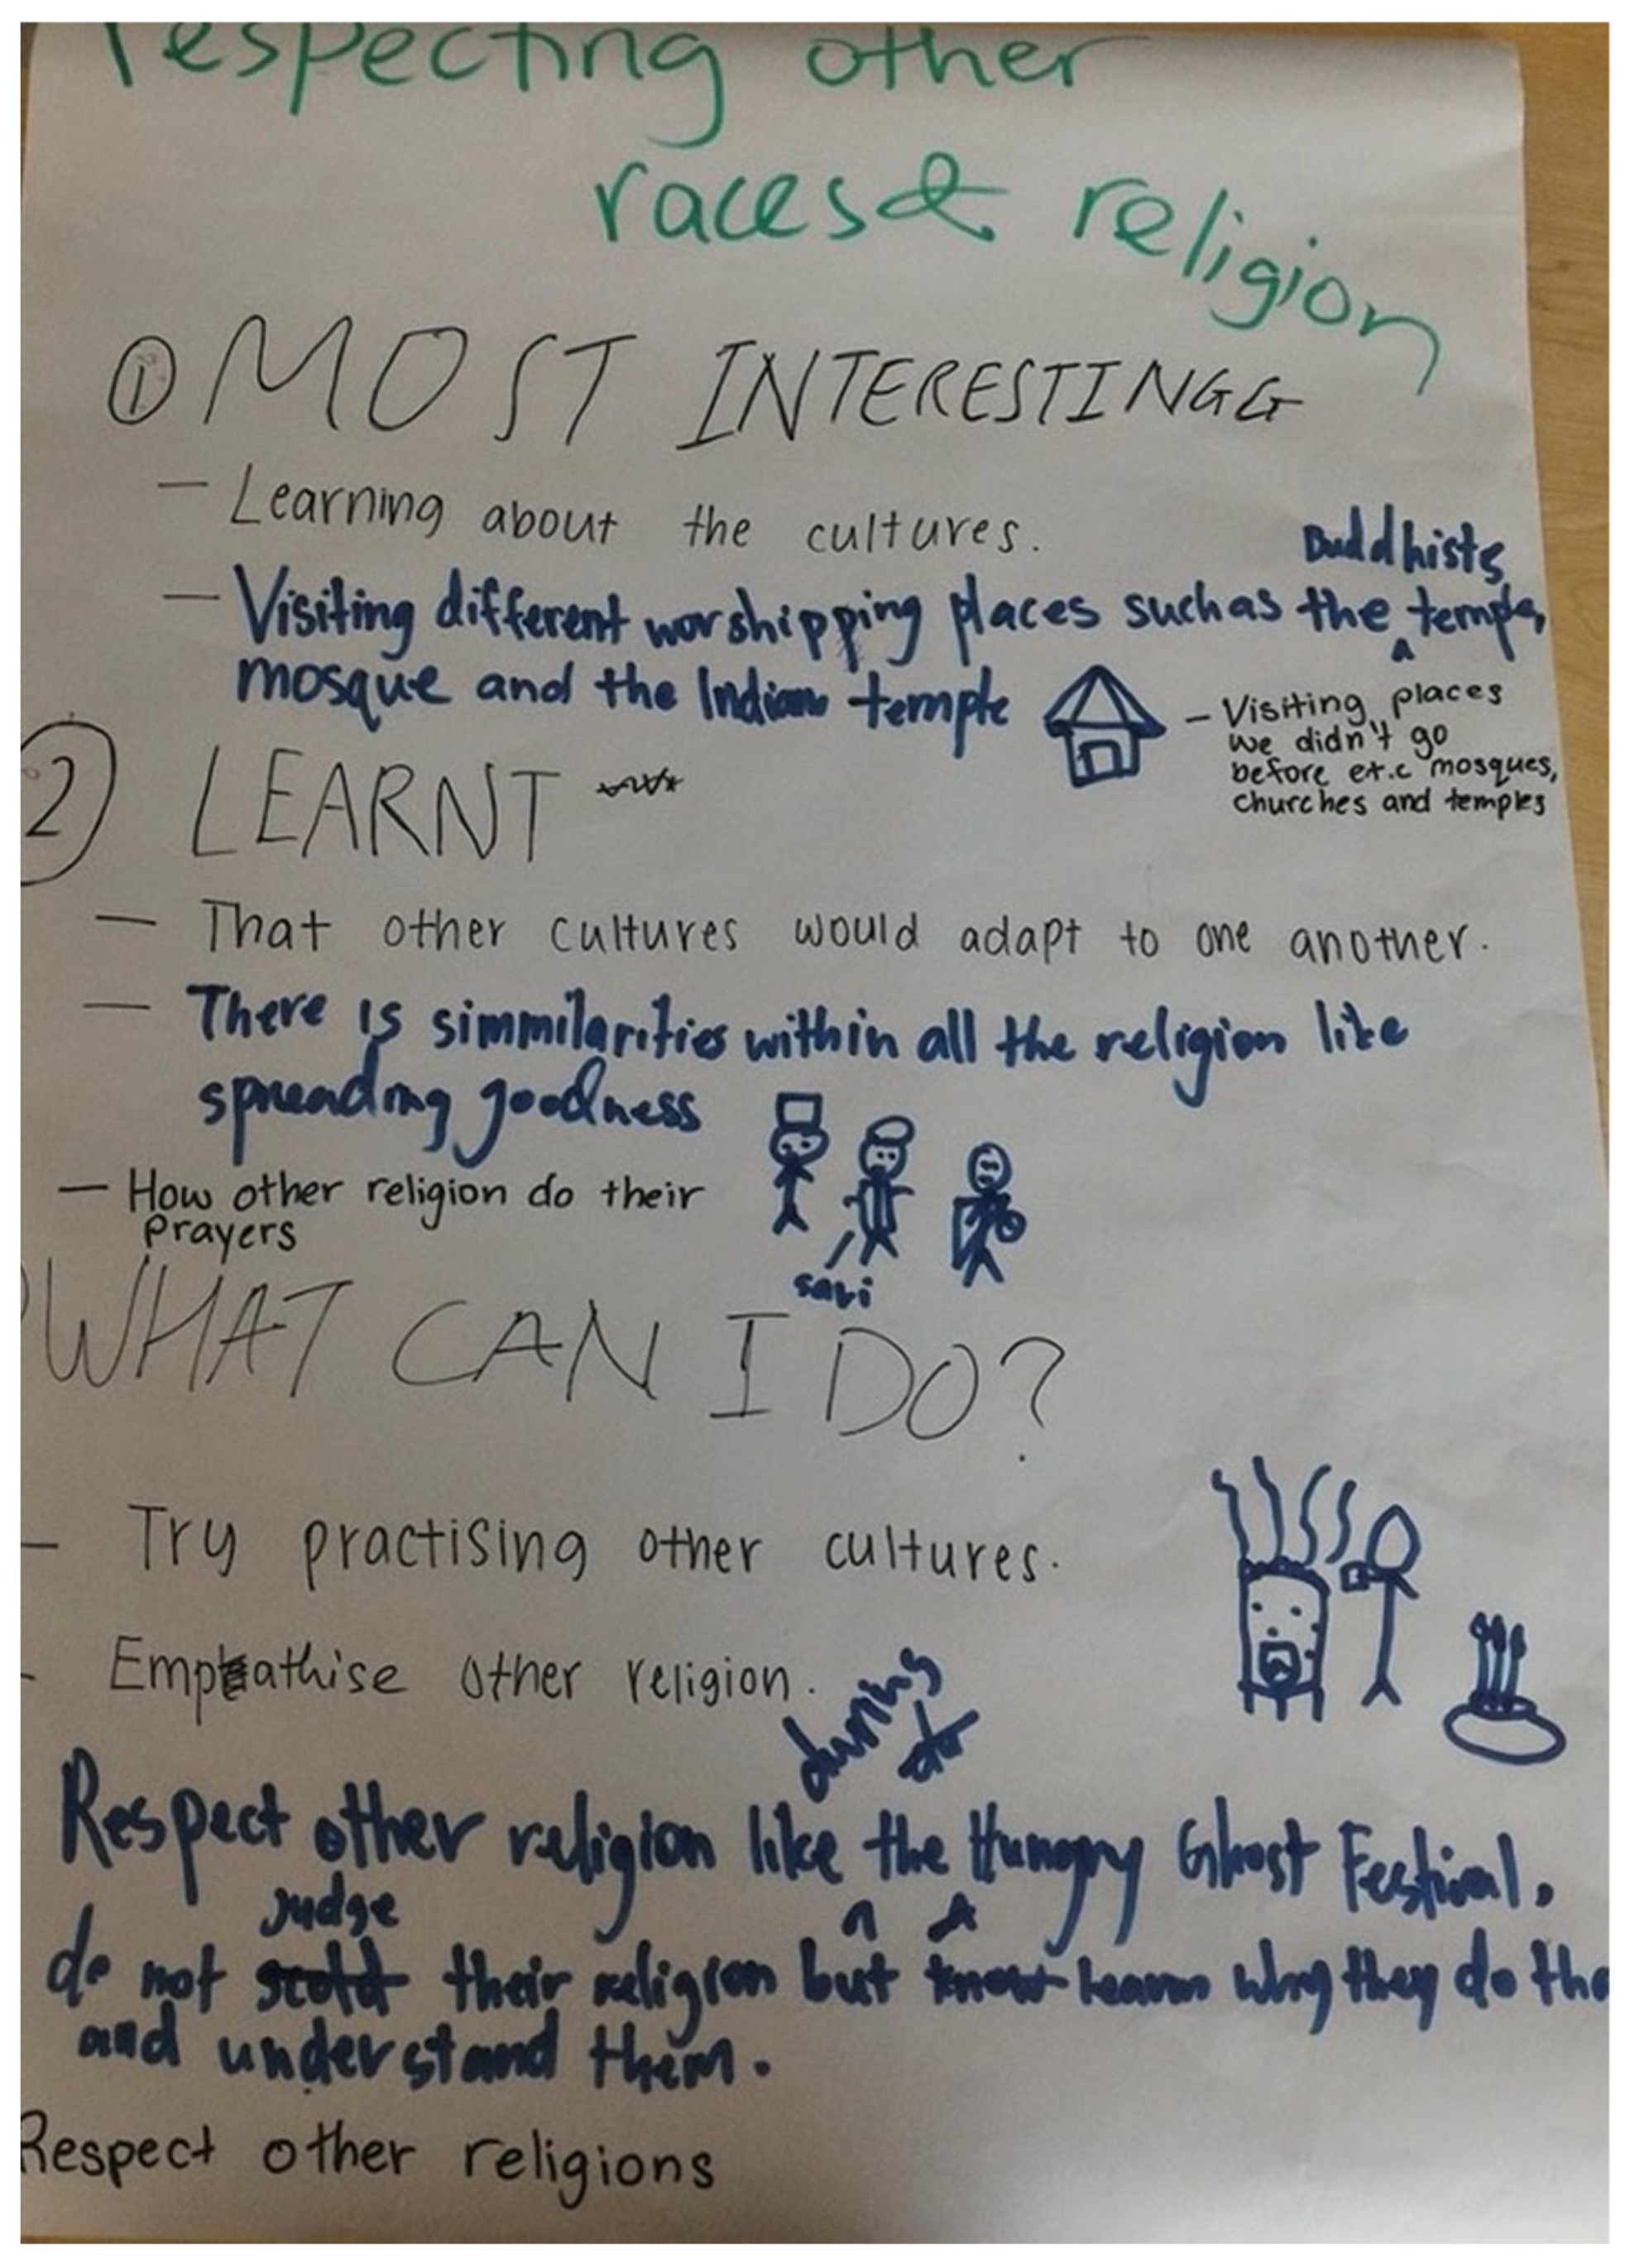 respecting other
races & religion
① MOST INTERESTINGG
— Learning about the cultures.
Buddhists
— Visiting different worshipping places such as the temple,
mosque and the Indian temple
— Visiting places
we didn't go
before et.c mosques,
churches and temples
② LEARNT
— That other cultures would adapt to one another.
— There is simmilarities within all the religion like
spreading goodness
— How other religion do their
prayers
sari
WHAT CAN I DO?
— Try practising other cultures.
- Empathise other religion.
during
Respect other religion like the Hungry Ghost Festival,
judge
do not scold their religion but know learn why they do
and understand them.
Respect other religions